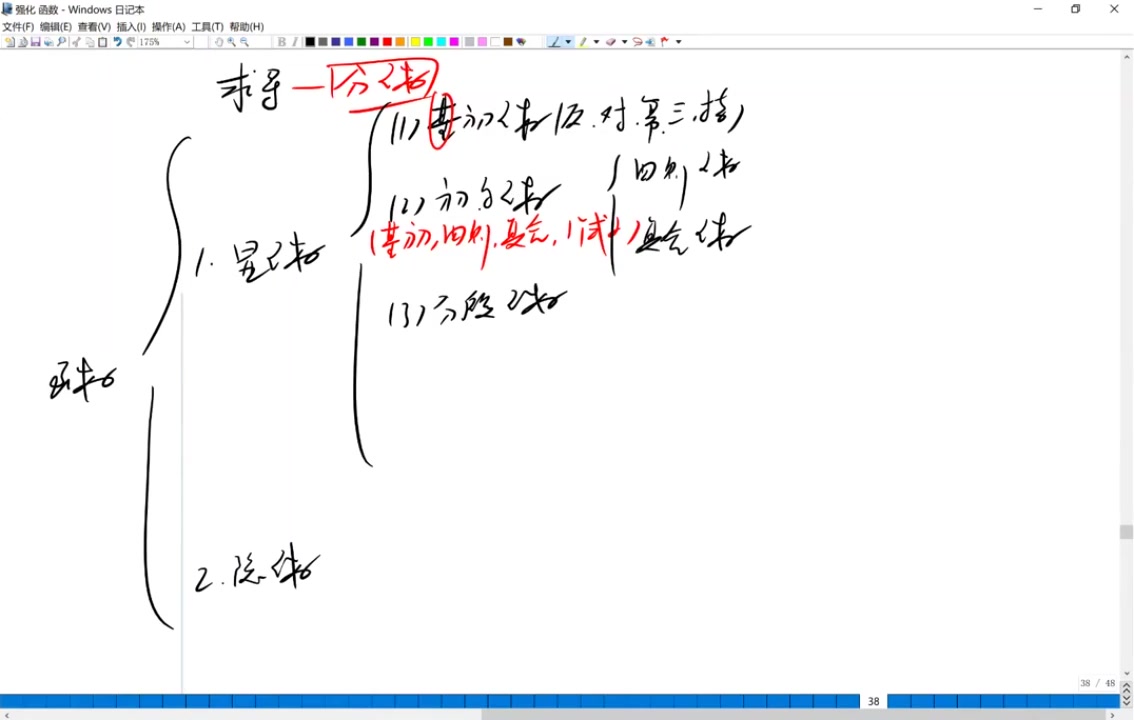 强化 函数 - Windows 日记本
文件(F) 编辑(E) 查看(V) 插入(I) 操作(A) 工具(T) 帮助(H)
175%
B I
求导 — 分函数
(1) 基初函数 (反.对.幂.三.指)
四则函数
(2) 初等函数
(基初,四则,复合,1个式子)
复合函数
1. 显函数
(3) 分段函数
函数
2. 隐函数
38 / 48
38